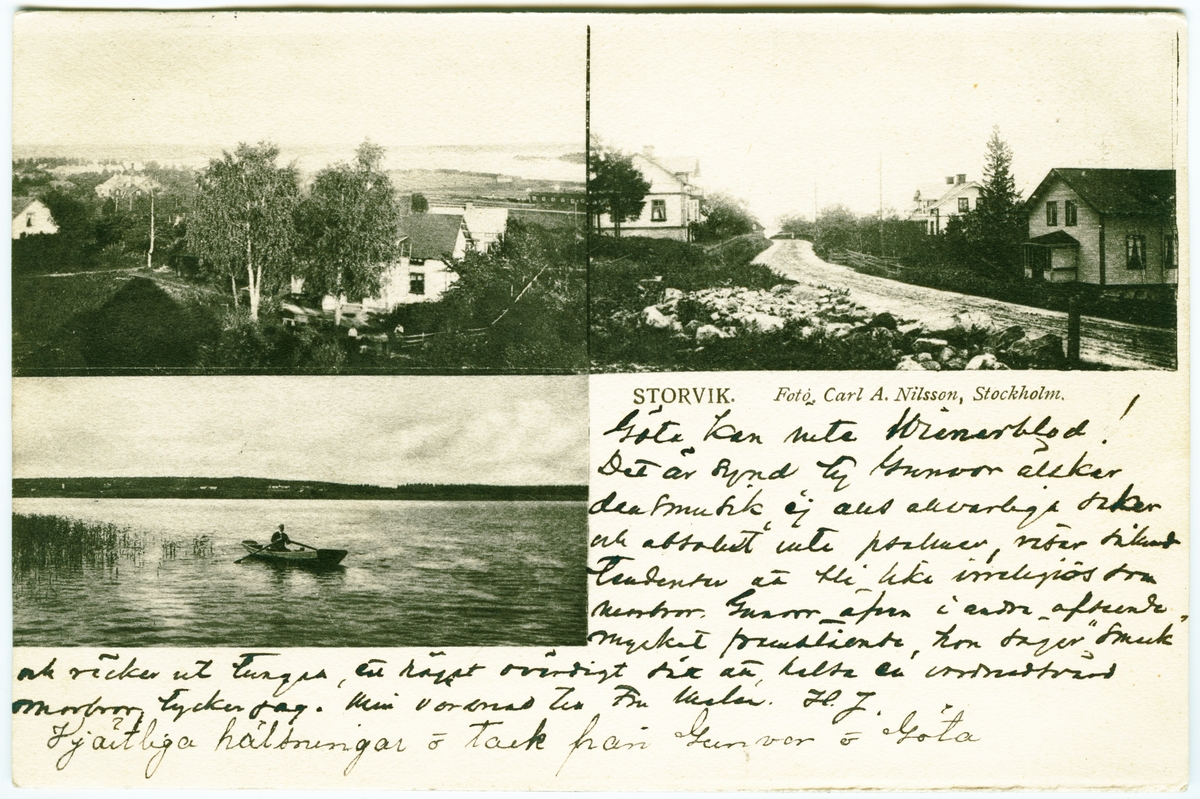 STORVIK. Foto. Carl A. Nilsson, Stockholm.
Göta kan inte Wienerblod!
Det är synd ty Gunvor älskar
den musik, ej alls allvarliga saker
och absolut inte psalmer, visar
tendenser att bli lika irreligiös som
morbror. Gunvor äfven i andra afseende
mycket framstående, hon säger "Smeck"
och räcker ut tungan, ett högst ovärdigt sätt att helsa en vördnadsvärd
morbror, tycker jag. Min vördnad till Fru Malin. H. J.
Hjärtliga hälsningar o tack från Gunvor o Göta